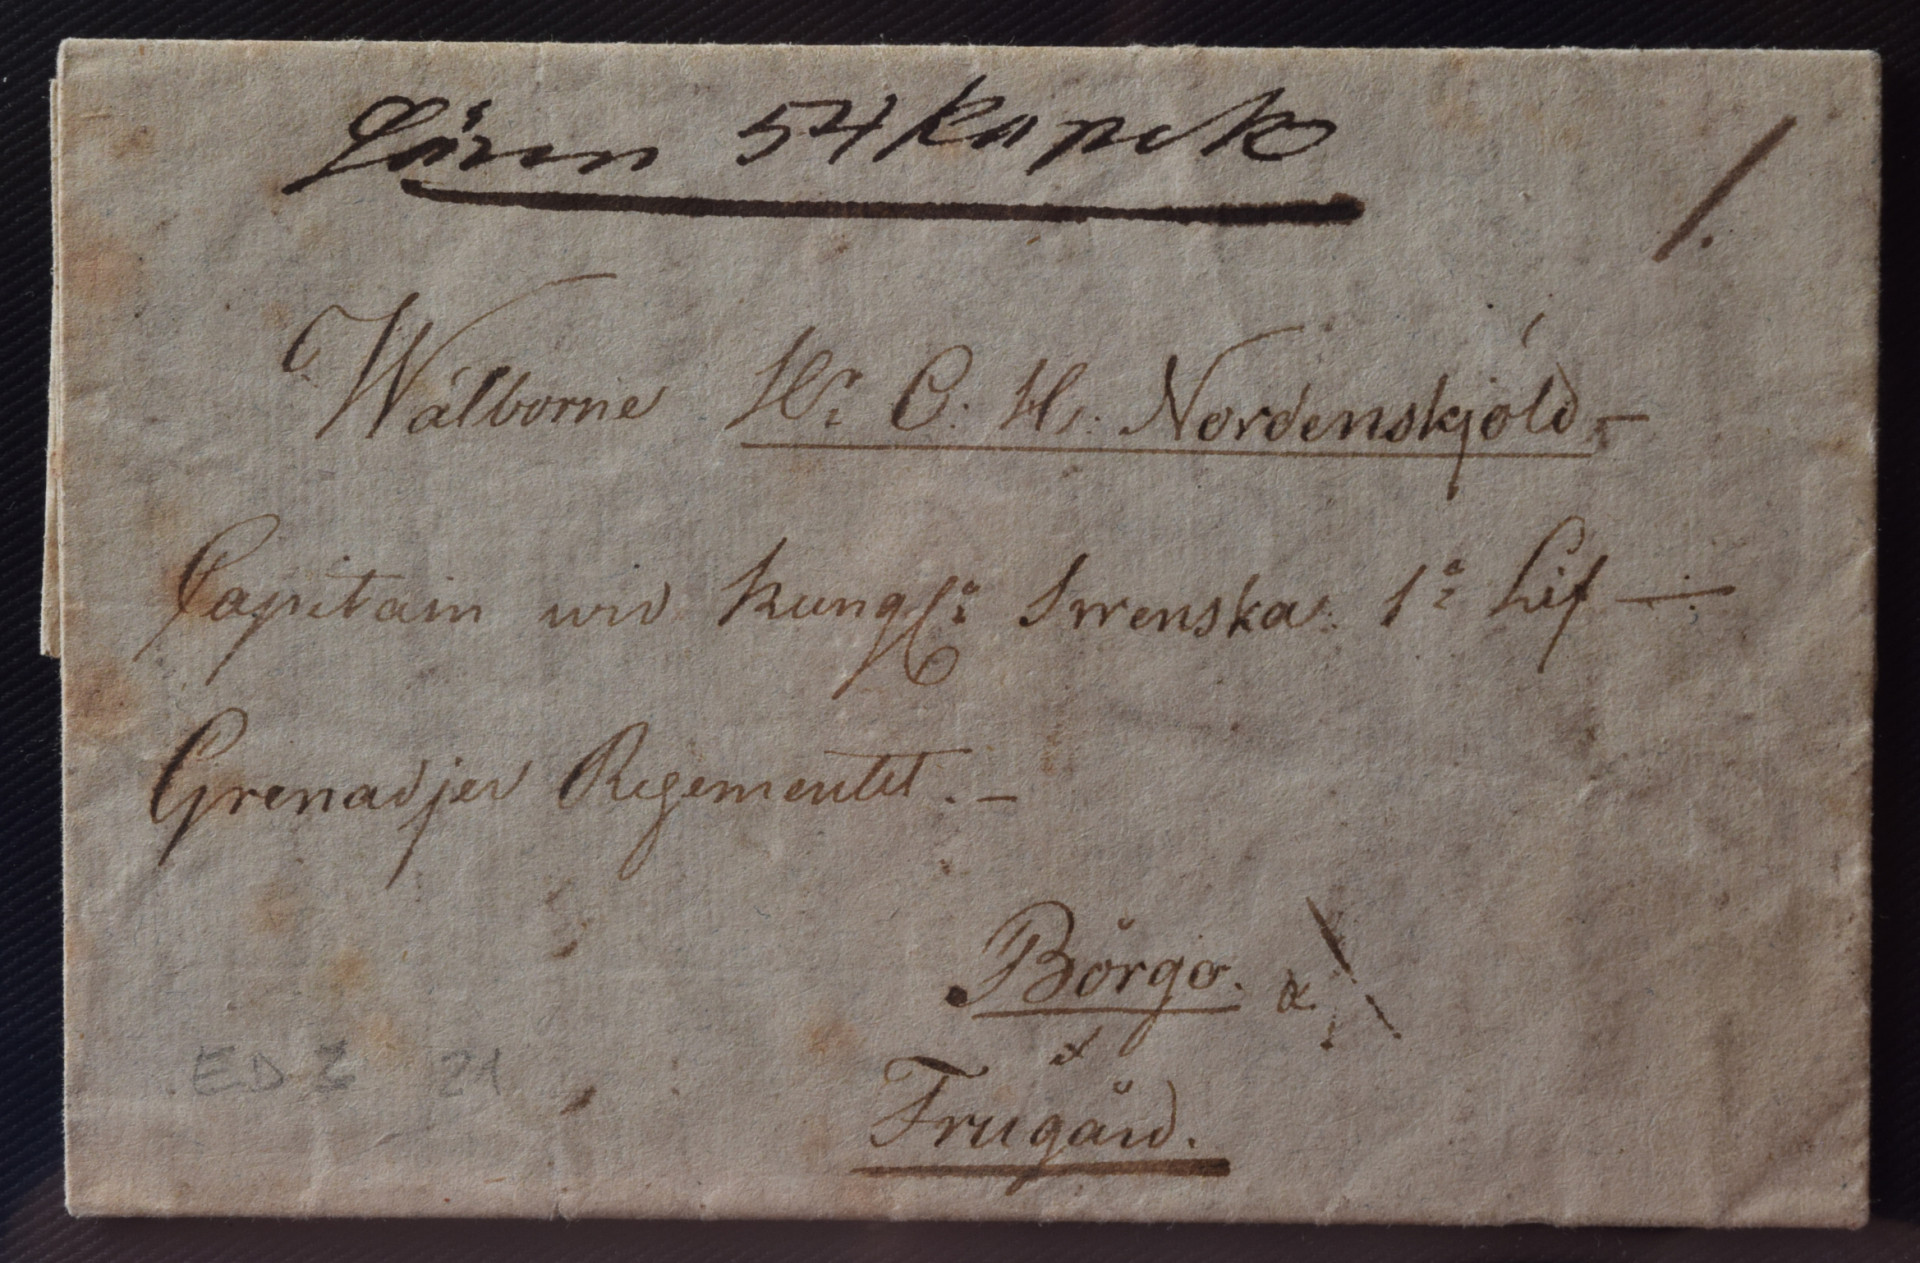 Lösen 54 kopek
1.
Wälborne Hr. C. H. Nordenskjöld. –
Capitain wid Kungl: Swenska 1a Lif –
Grenadjer Regementet. –
Börgo. &
Frugård.
ED 3 21